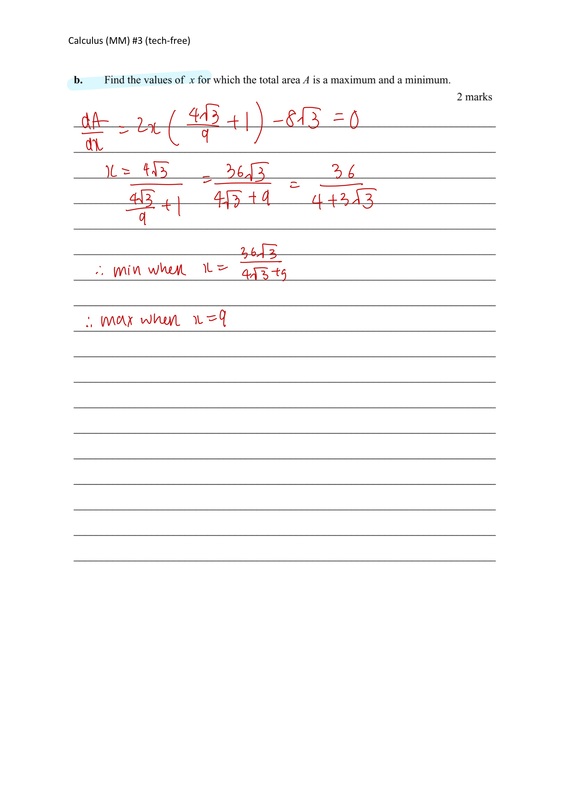 Calculus (MM) #3 (tech-free)
b. Find the values of x for which the total area A is a maximum and a minimum.
2 marks
dA/dx = 2x ( 4√3/9 + 1 ) - 8√3 = 0
x = 4√3/(4√3/9 + 1) = 36√3/(4√3 + 9) = 36/(4 + 3√3)
∴ min when x = 36√3/(4√3 + 9)
∴ max when x = 9